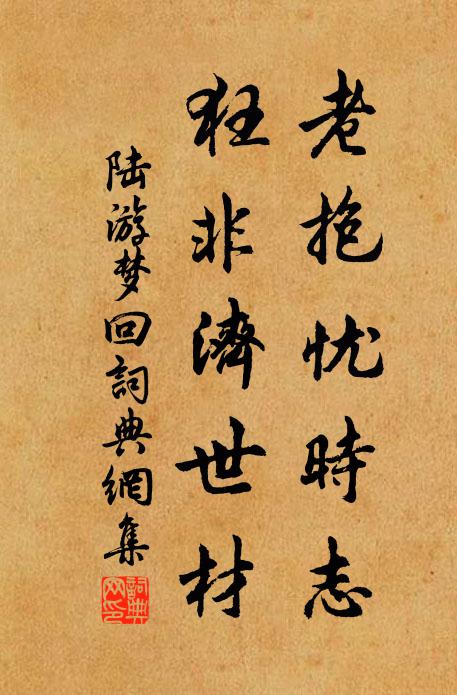 老抱忧時志
狂非濟世材
陆游梦回詞典網集
詞典网印